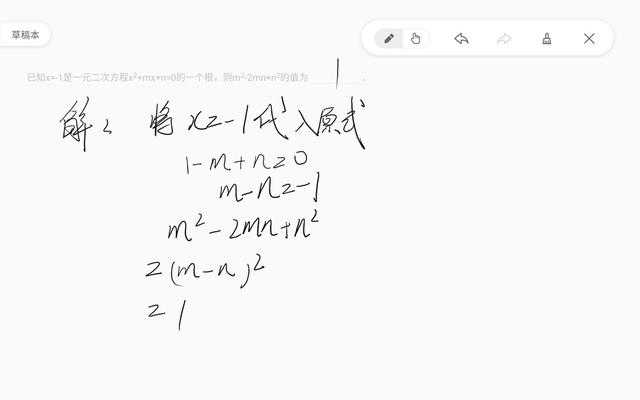 草稿本
已知x=-1是一元二次方程x²+mx+n=0的一个根，则m²-2mn+n²的值为 1 .
解: 将x=-1代入原式
1-m+n=0
m-n=-1
m²-2mn+n²
=(m-n)²
=1